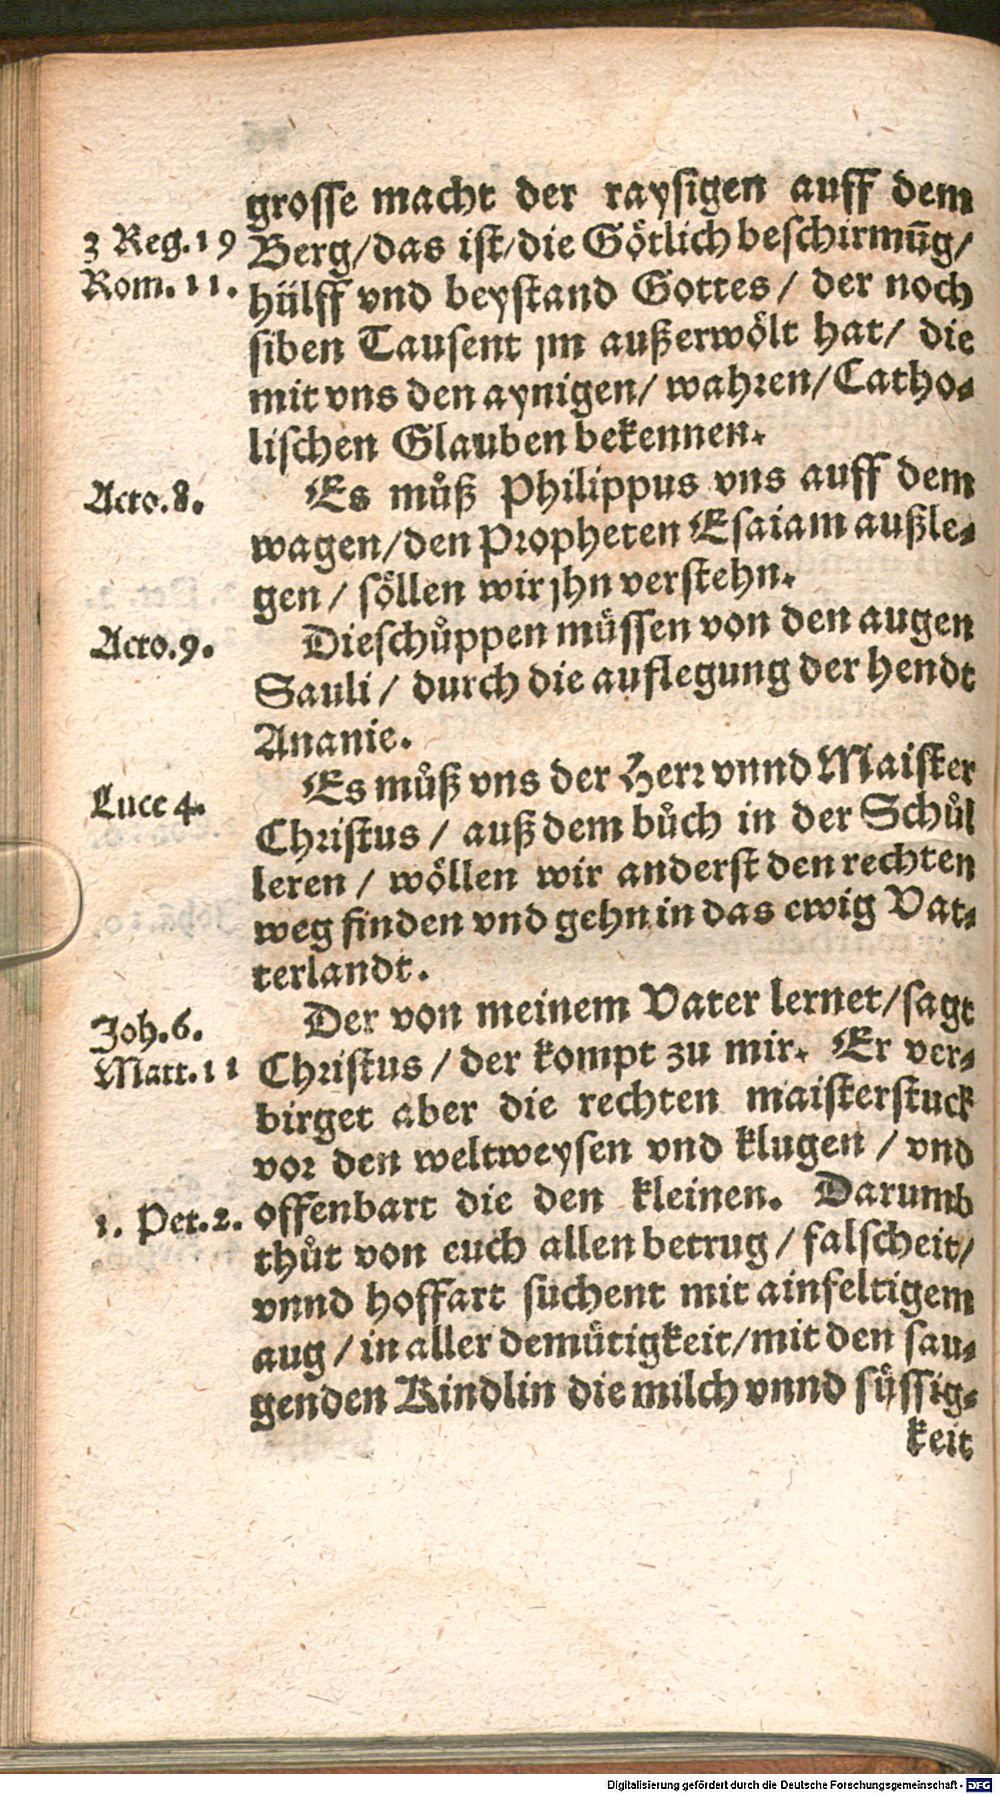 grosse macht der raysigen auff dem
3 Reg. 19 Berg/das ist/die Götlich beschirmūg/
Rom. 11. hülff vnd beystand Gottes/ der noch
siben Tausent jm außerwölt hat/ die
mit vns den aynigen/ wahren/Catho-
lischen Glauben bekennen.
Acto. 8. Es můß Philippus vns auff dem
wagen/den Propheten Esaiam außle-
gen/ söllen wir jhn verstehn.
Acto. 9. Die schůppen müssen von den augen
Sauli/ durch die auflegung der hendt
Ananie.
Es můß vns der Herr vnnd Maister
Luce 4. Christus/ auß dem bůch in der Schůl
leren/ wöllen wir anderst den rechten
weg finden vnd gehn in das ewig Vat-
terlandt.
Joh. 6. Der von meinem Vater lernet/sagt
Matt. 11 Christus/ der kompt zu mir. Er ver-
birget aber die rechten maisterstuck
vor den weltweysen vnd klugen/ vnd
1. Pet. 2. offenbart die den kleinen. Darumb
thůt von euch allen betrug/ falscheit/
vnnd hoffart suchent mit ainfeltigem
aug/ in aller demütigkeit/mit den sau-
genden Kindlin die milch vnnd süssig-
keit
Digitalisierung gefördert durch die Deutsche Forschungsgemeinschaft - DFG